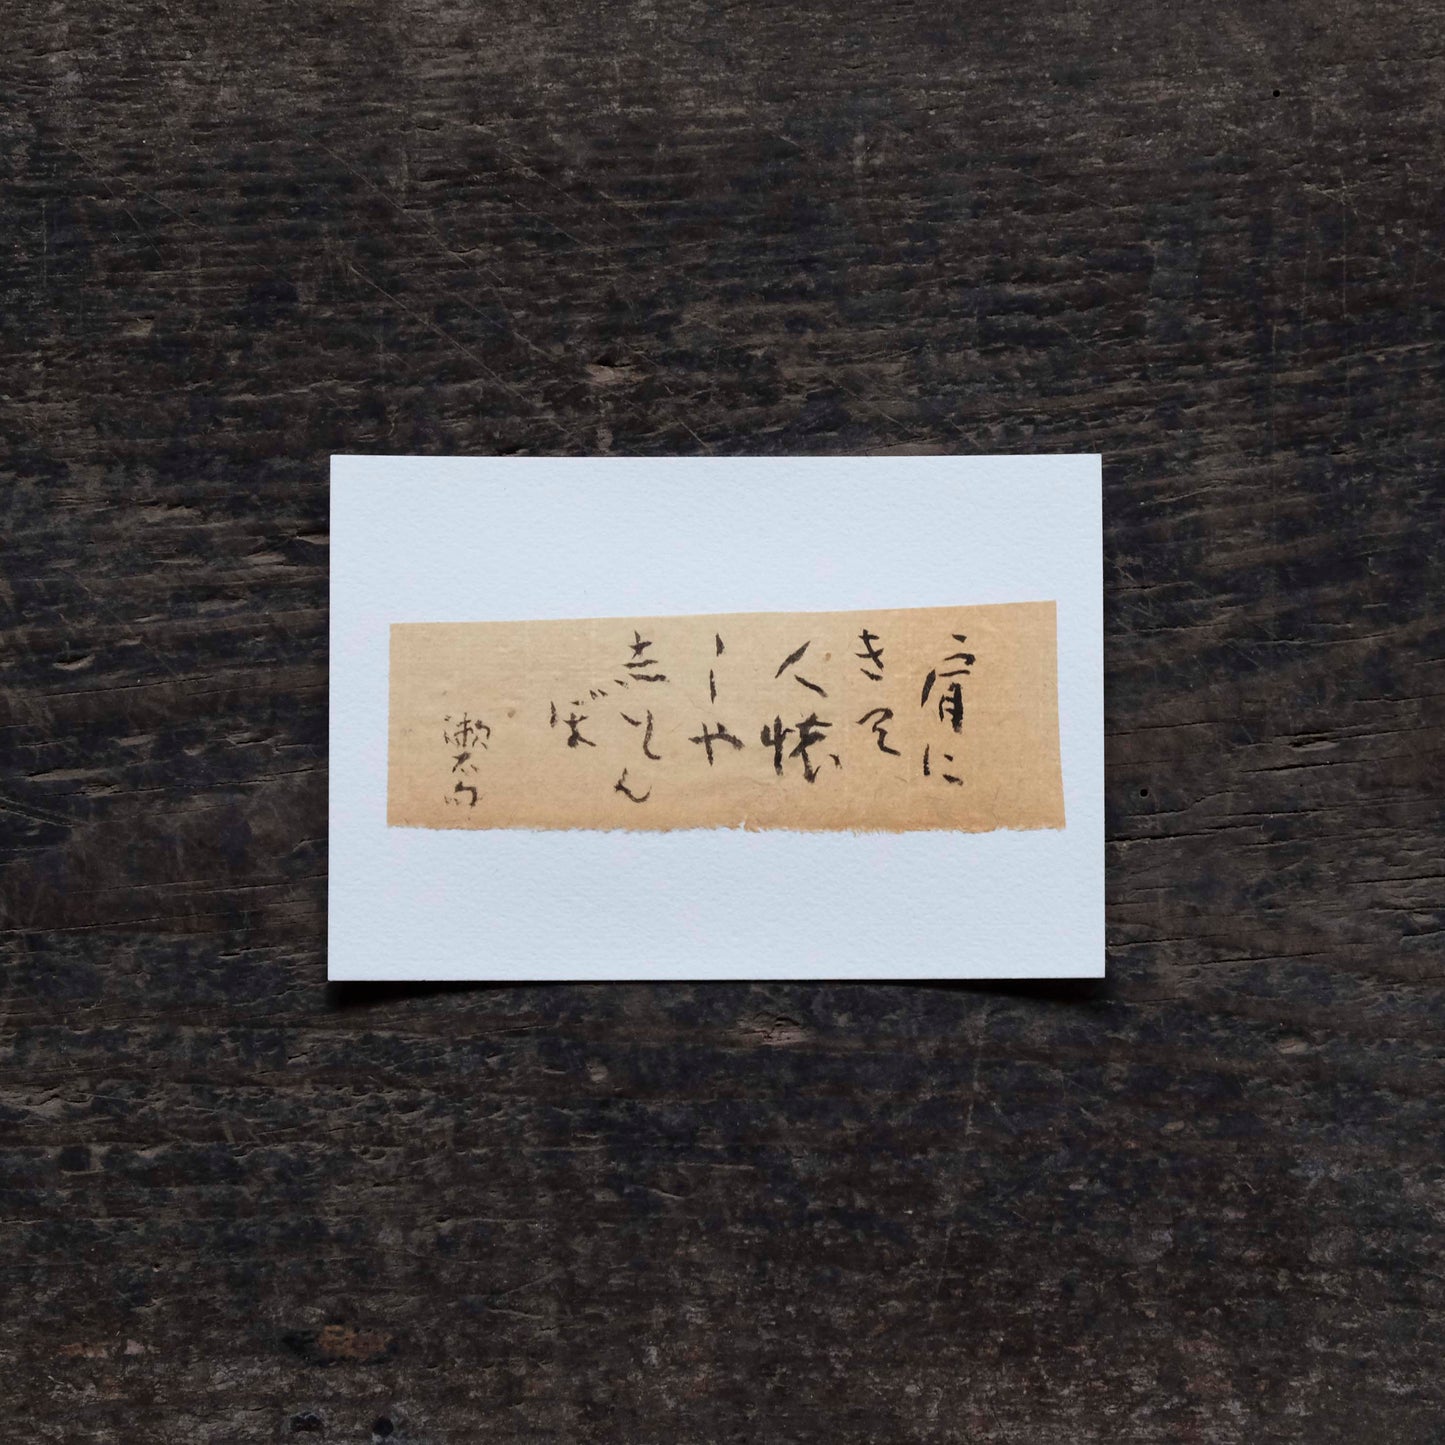 肩に
きて
人懐
しや
赤とん
ぼ
漱石